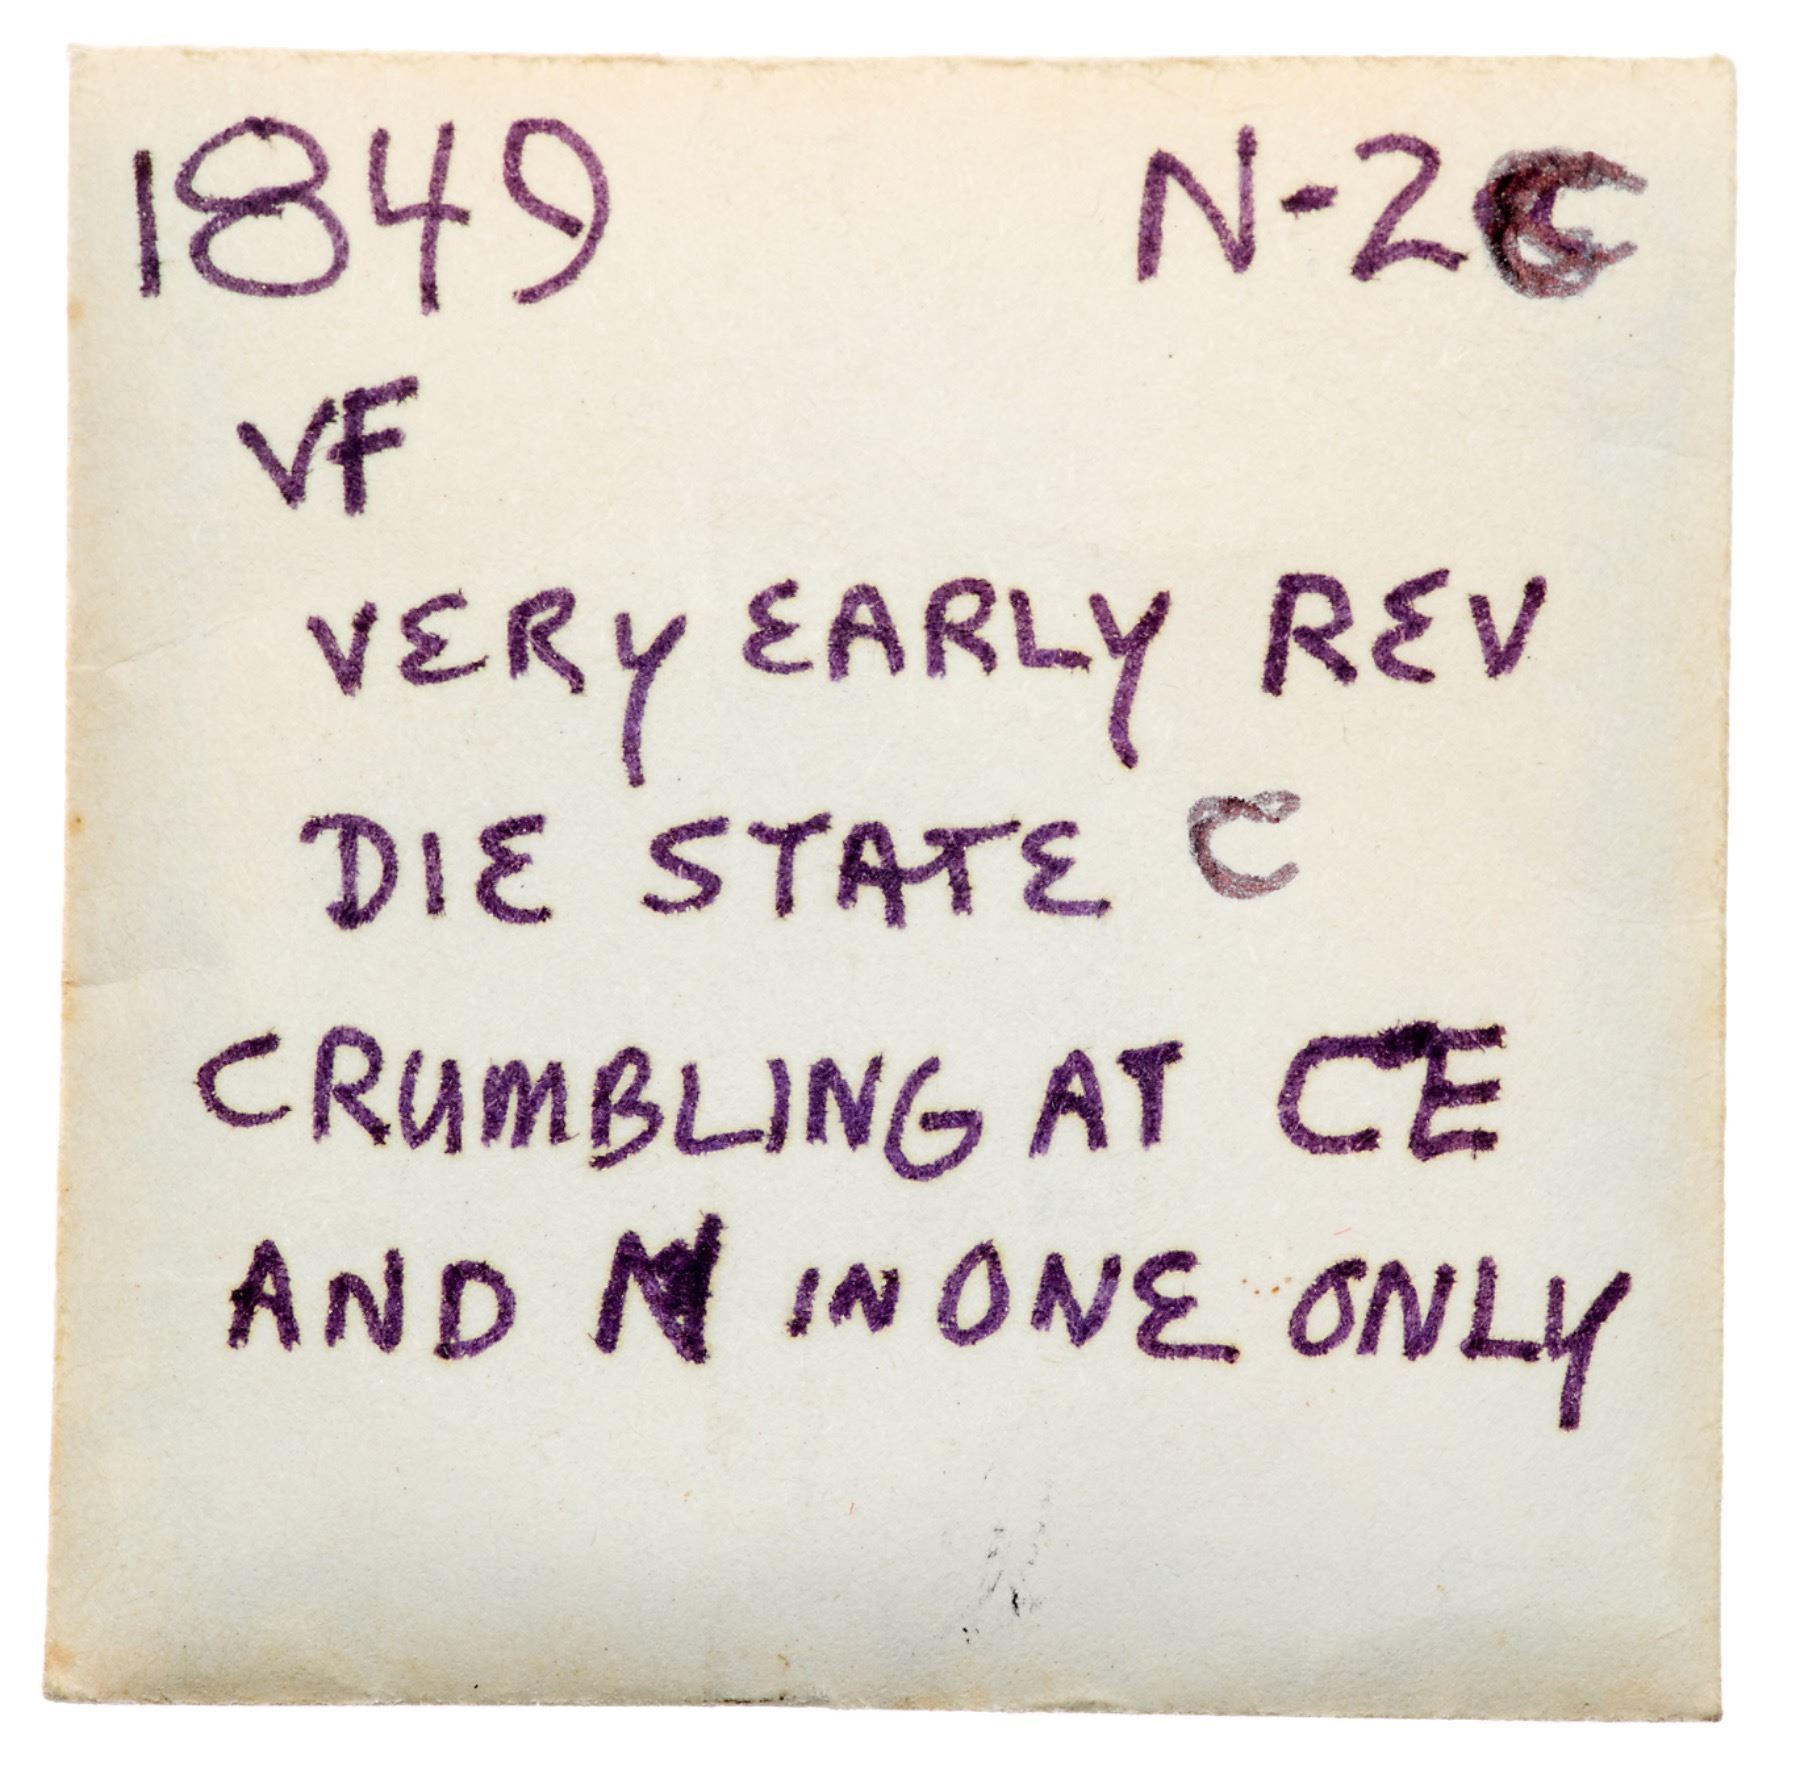 1849 N-2C
VF
VERY EARLY REV
DIE STATE C
CRUMBLING AT CE
AND N IN ONE ONLY